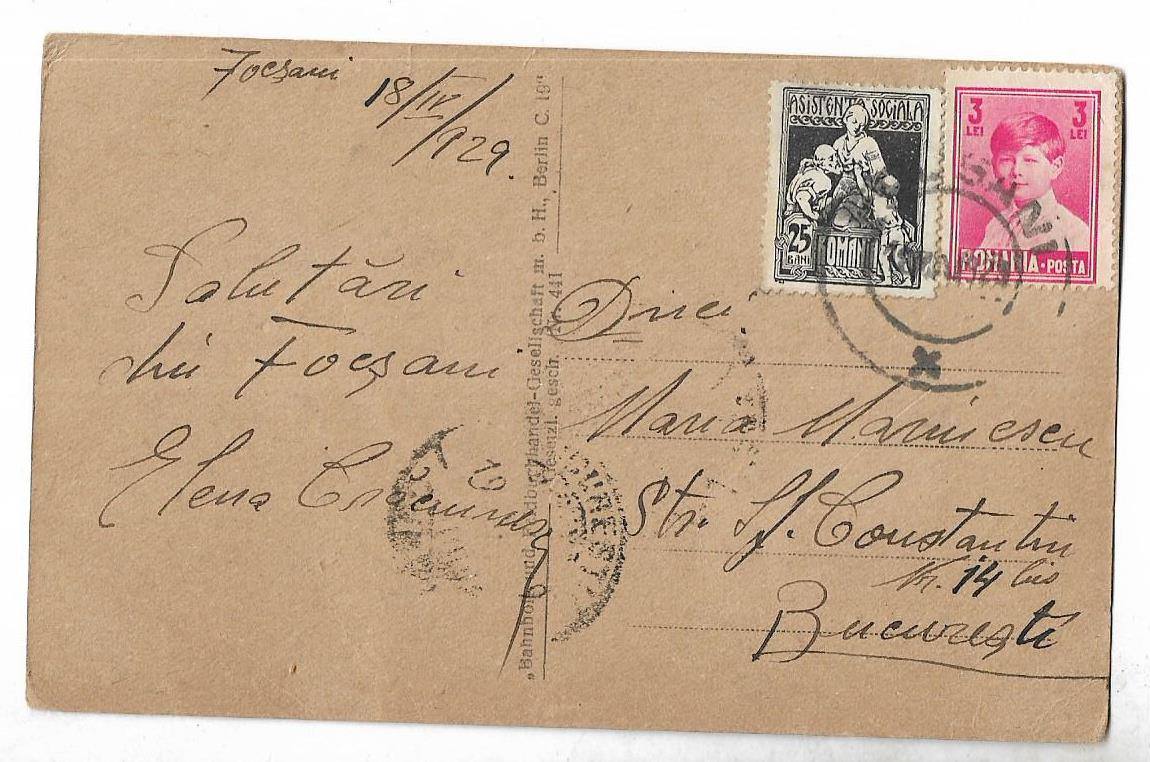 Focșani
18/IV/929.
Salutări
din Focșani
Elena
„Bahnhofsbuchhandel-Gesellschaft m. b. H., Berlin C. 19“
Gesetzl. gesch. Nr. 441
ASISTENȚA SOCIALA
25
BANI
ROMANIA
3 3
LEI LEI
ROMANIA·POSTA
Dnei
Maria Marinescu
Str. Sf. Constantin
Nr. 14 bis
București